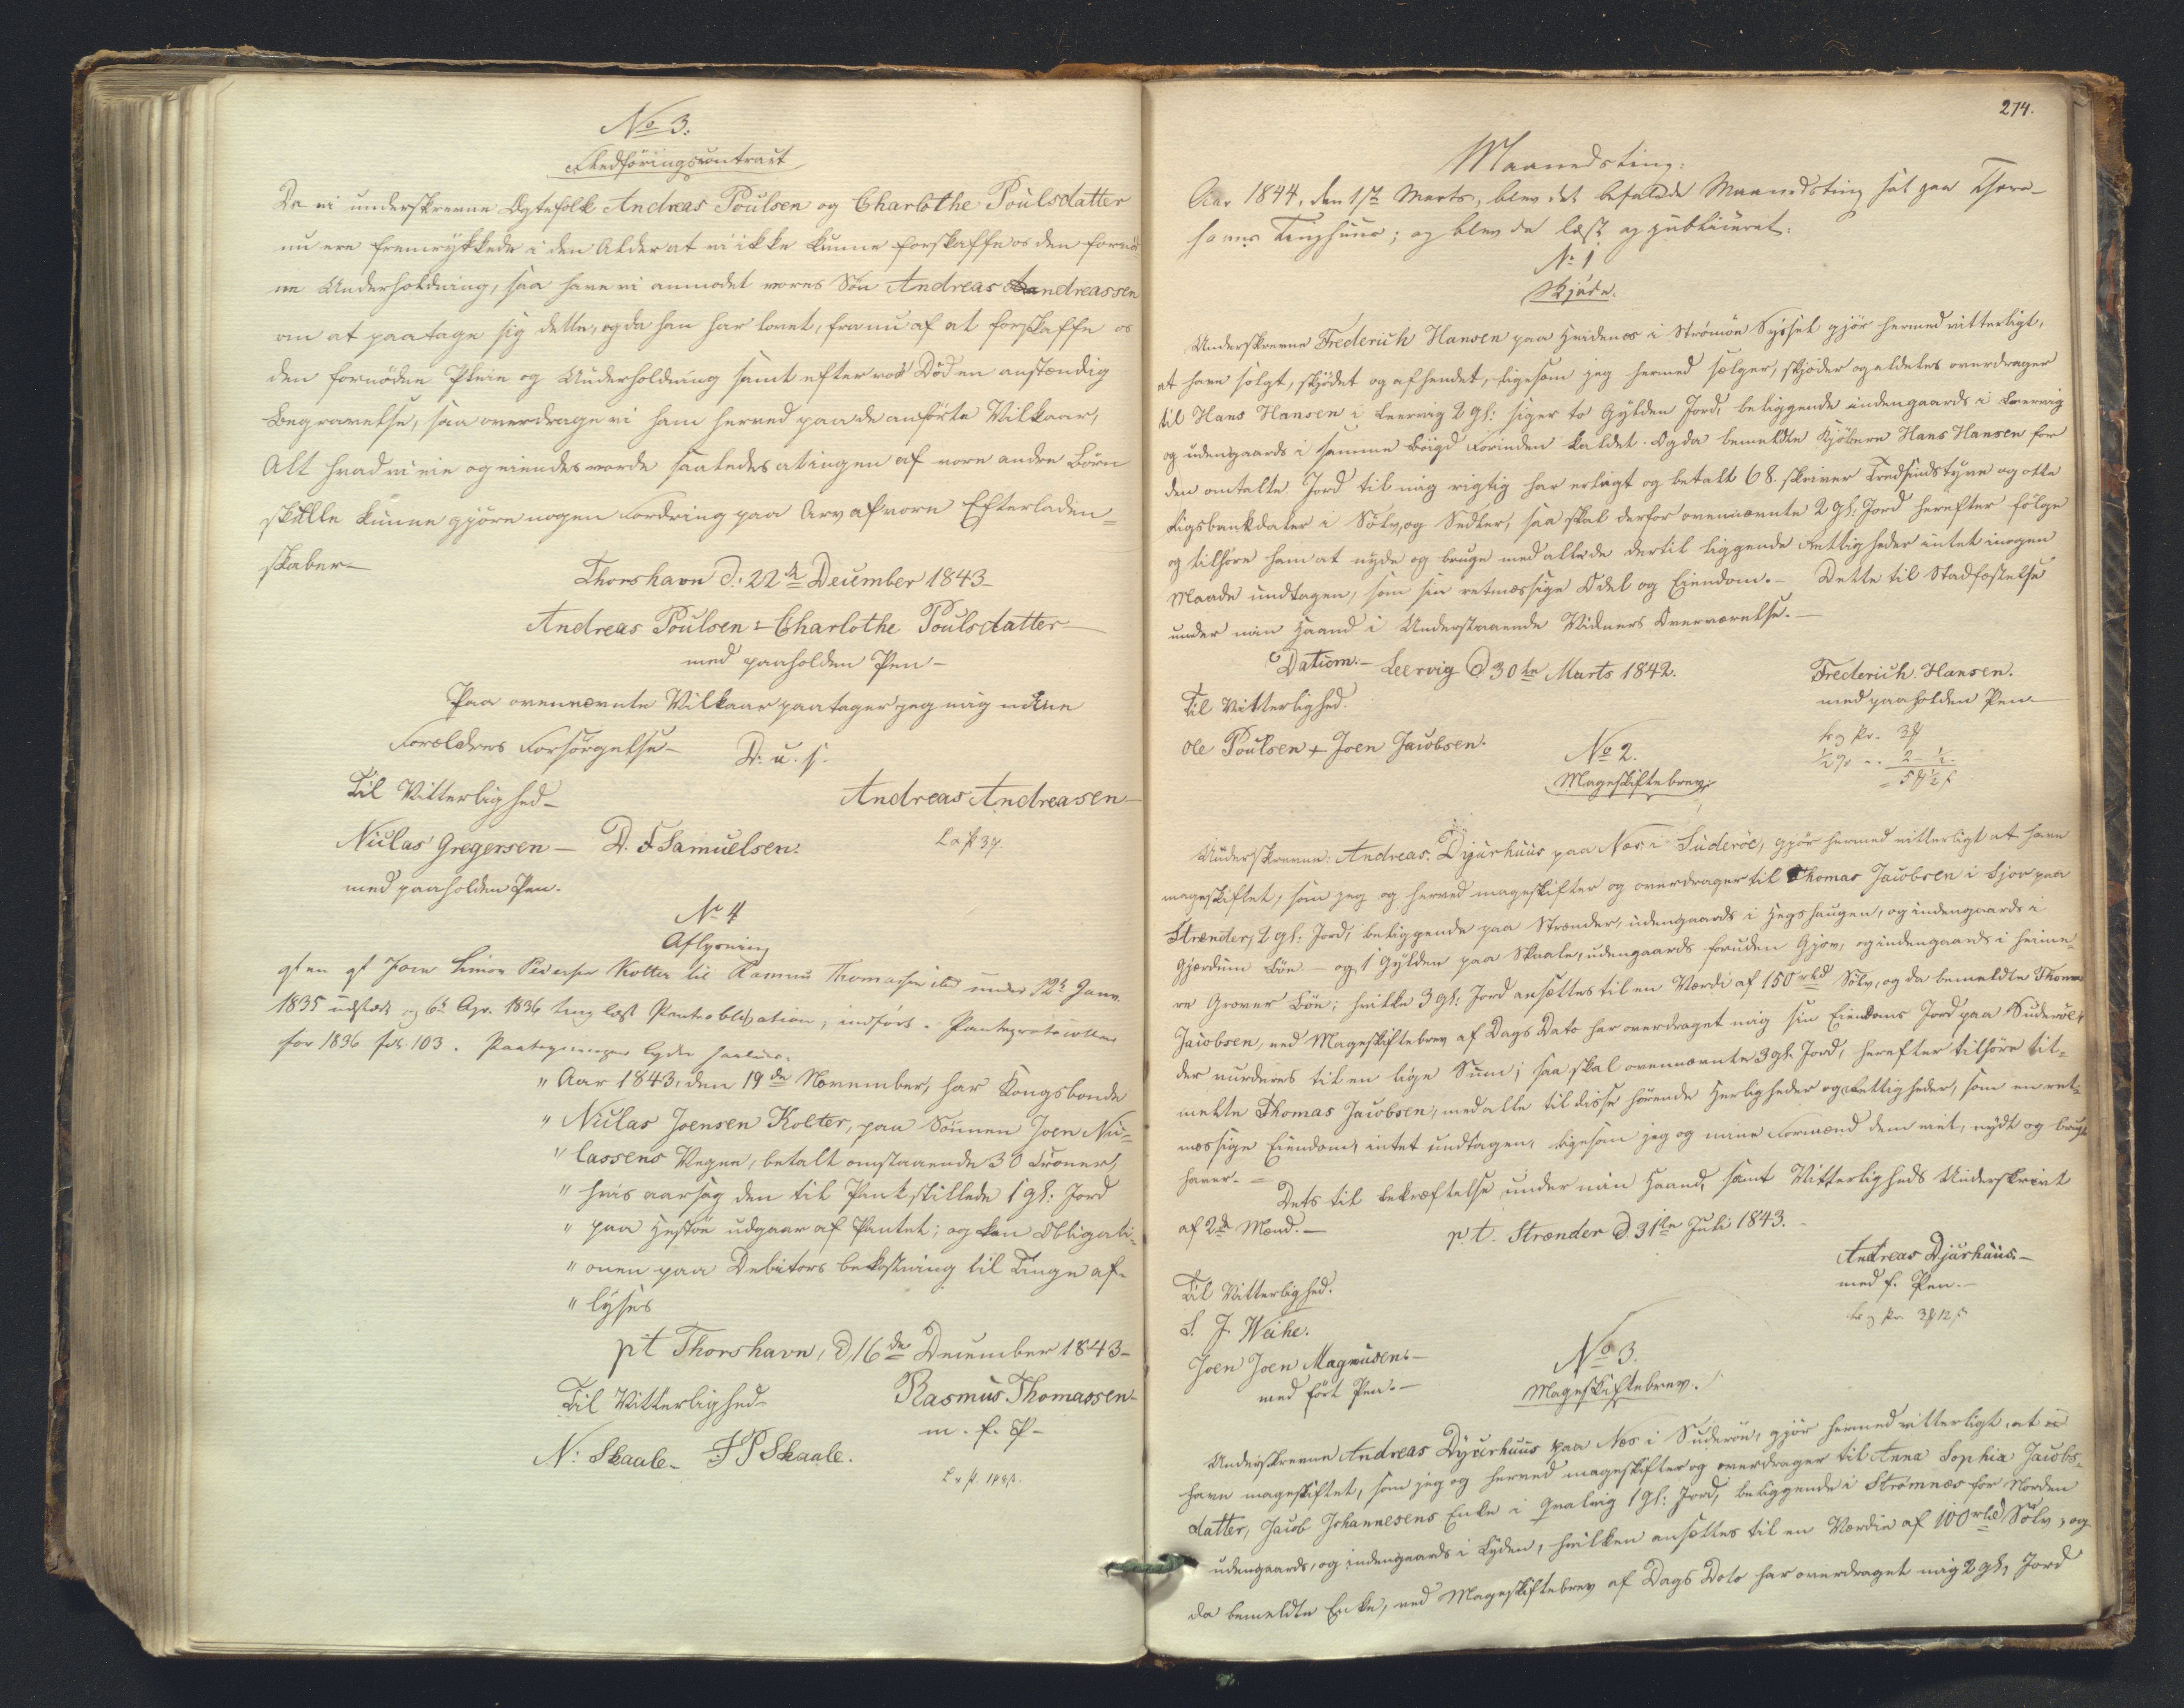 No 3.
Fledføringscontract
Da vi underskrevne Ægtefolk Andreas Poulsen og Charlothe Poulsdatter
nu ere fremrykkede i den Alder at vi ikke kunne forskaffe os den fornød-
ne Underholdning, saa have vi anmodet vores Søn Andreas Andreassen
om at paatage sig dette, og da han har lovet, fra nu af at forskaffe os
den fornødne Pleie og Underholdning samt efter vor Død en anstændig
Begravelse, saa overdrage vi ham herved paa de anførte Vilkaar,
Alt hvad vi eie og eiendes vorde saaledes at ingen af vore andre Børn
skulle kunne gjøre nogen Fordring paa Arv af vore Efterladen=
skaber-
Thorshavn d: 22de December 1843-
Andreas Poulsen = Charlothe Poulsdatter
med paaholden Pen-
Paa ovennævnte Vilkaar paatager jeg mig mine
Forældres Forsørgelse- D. u. s.
Til Vitterlighed-
Andreas Andreasen-
Niclas Gregersen- D. F Samuelsen.
med paaholden Pen.
No 4
Aflysning
Joen Simon Pedersen Kolter til Rasmus Thomasen under 12te Janv.
1835 udstædt og 6te Apr. 1836 ting læst Panteobligation, indført i Panteprotocollen
for 1836 fol. 103. Paategningen lyder saaledes.
" Aar 1843, den 19de November, har Kongsbonde
" Niclas Joensen Kolter, paa Sønnen Joen Nic=
" lassens Vegne, betalt omstaaende 30 Kroner,
" hvis aarsag den til Pant stillede 1 gl: Jord
" paa Hestøe udgaar af Pantet; og kan Obligati=
" onen paa Debitors bekostning til Tinge af-
" lyses
pt Thorshavn, d. 16de December 1843-
Til Vitterlighed-
Rasmus Thomassen-
m. f. P-
N: Skaale- J P Skaale.
274.
Maanedsting:
Aar 1844, den 1ste Marts, blev det befalede Maanedsting sat paa Thors-
havns Tinghuus; og blev da læst og publiceret:
No 1
Skjøde.
Underskrevne Frederich Hansen paa Hvidenæs i Strømøe Syssel gjør hermed vitterligt,
at have solgt, skjødet og afhendet, ligesom jeg hermed sælger, skjøder og aldeles overdrager
til Hans Hansen i Leervig 2 gl: siger to Gylden Jord, beliggende indengaards i Leervig
og udengaards i samme Bøigd kaldet. Og da bemeldte Kjøbere Hans Hansen for
den omtalte Jord til mig rigtig har erlagt og betalt 68. skriver Tredsindstyve og otte
Rigsbankdaler i Sølv og Sedler, saa skal derfor ovennævnte 2 gl: Jord herefter følge
og tilhøre ham at nyde og bruge med alle de dertil liggende Rettigheder intet i nogen
Maade undtagen, som sin retmæssige Odel og Eiendom.- Dette til Stadfæstelse
under min Haand i Understaaende Vidners Overværelse.-
Datum.- Leervig d 30te Marts 1842.
Frederich Hansen.
Til Vitterlighed.
med paaholden Pen-
Ole Poulsen + Joen Jacobsen.
No 2.
Mageskiftebrev.
Underskrevne Andreas Djurhuus paa Næs i Suderøe, gjør hermed vitterligt at have
mageskiftet, som jeg og herved mageskifter og overdrager til Thomas Jacobsen i Sjov paa
Strænder, 2 gl: Jord, beliggende paa Strænder, udengaards i Hegshaugen, og indengaards i
Gjærdum Bøe - og 1 Gylden paa Skaale, udengaards foruden Gjov, og indengaards i Heime=
re Grover Bøe; hvilke 3 gl: Jord ansættes til en Værdi af 150 rbd Sølv, og da bemeldte Thomas
Jacobsen, ved Mageskiftebrev af Dags Dato har overdraget mig sin Eiendoms Jord paa Suderøe,
der vurderes til en lige Sum; saa skal ovennævnte 3 gl: Jord, herefter tilhøre bit=
meldte Thomas Jacobsen, med alle til disse hørende Herligheder og Rettigheder, som en ret=
mæssige Eiendom, intet undtagen, ligesom jeg og mine Formænd dem eiet, nydt og brugt
haver.- =
Dets til bekræftelse under min Haand, samt Vitterligheds Underskrivt
af 2de Mænd.-
p. t. Strænder d. 31te Juli 1843.
Andreas Djurhuus-
med f. Pen.-
Til Vitterlighed.
S. J. Weihe.
Joen Joen Magnusen.-
med ført Pen.-
No 3.
Mageskiftebrev.
Underskrevne Andreas Djurhuus paa Næs i Suderøe, gjør hermed vitterligt, at
have mageskiftet, som jeg og herved mageskifter og overdrager til Anna Sophia Jacobs-
datter, Jacob Johannesens Enke i Qvalvig 1 gl: Jord, beliggende i Strømnæs for Norden
udengaards, og indengaards i Lyden, hvilken ansættes til en Værdie af 100 rbd Sølv, og
da bemeldte Enke, ved Mageskiftebrev af Dags Dato har overdraget mig 2 gl, Jord